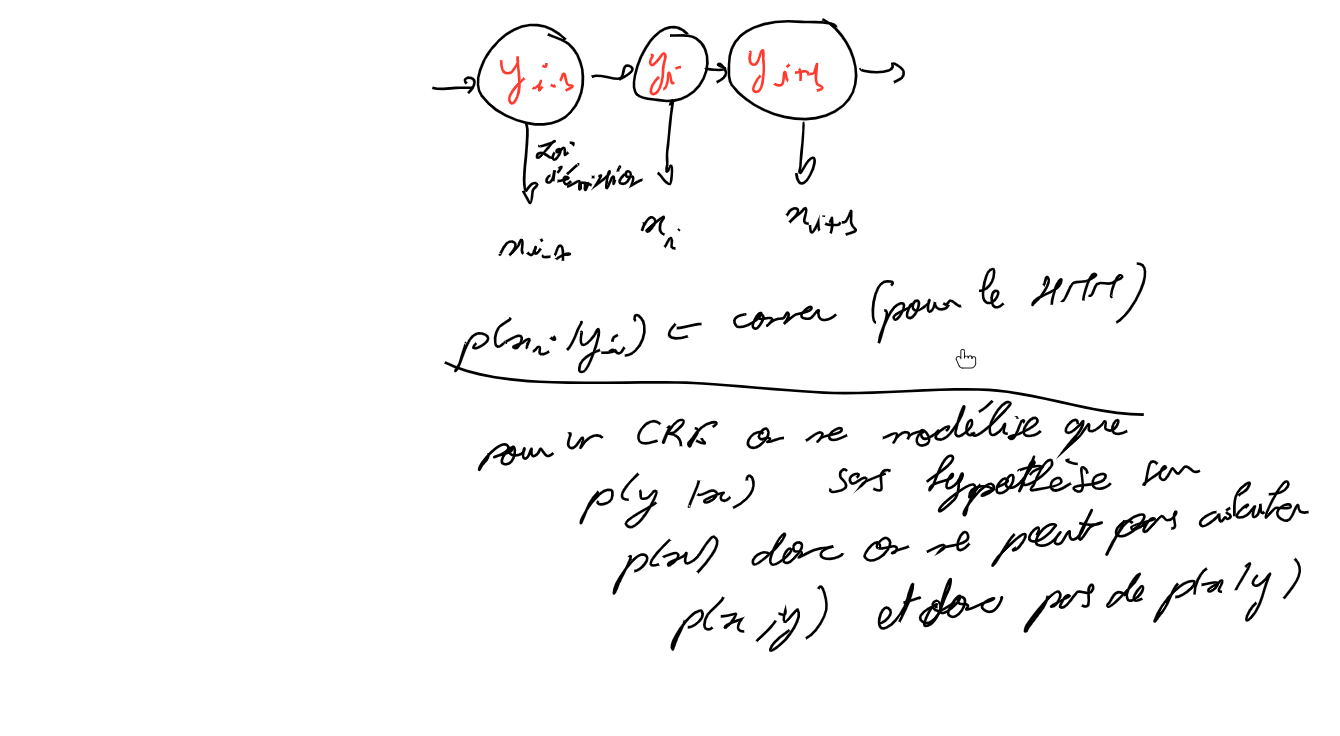 y i-1 y i y i+1
Loi
d'émission
x i-1 x i x i+1
p(x i | y i) ← connu (pour le HMM)
pour un CRF on ne modélise que
p(y | x) sans hypothèse sur
p(x) donc on ne peut pas calculer
p(x, y) et donc pas de p(x | y)